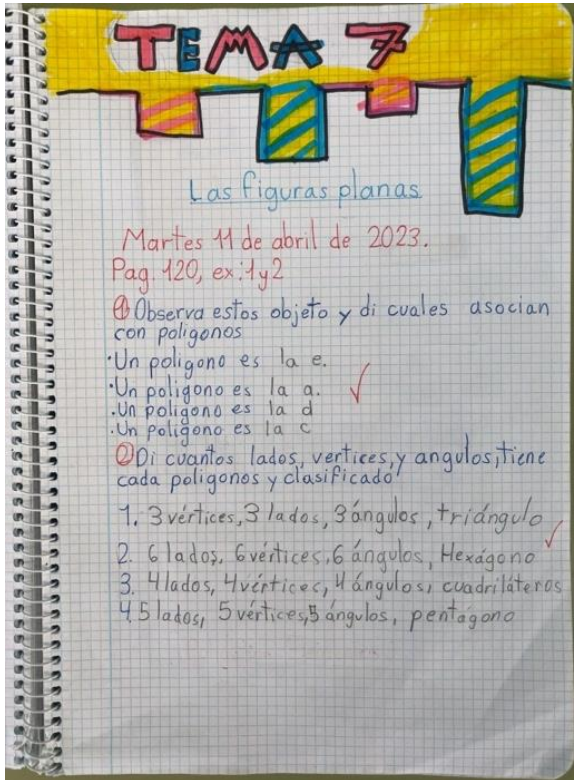 TEMA 7
Las figuras planas
Martes 11 de abril de 2023.
Pag. 120, ex: 1y2
1 Observa estos objeto y di cuales asocian
con poligonos
·Un poligono es la e.
·Un poligono es la a.
·Un poligono es la d
·Un poligono es la c
2 Di cuantos lados, vertices, y angulos, tiene
cada poligonos y clasificado
1. 3 vértices, 3 lados, 3 ángulos, triángulo
2. 6 lados, 6 vértices, 6 ángulos, Hexágono
3. 4 lados, 4 vértices, 4 ángulos, cuadriláteros
4. 5 lados, 5 vértices, 5 ángulos, pentágono